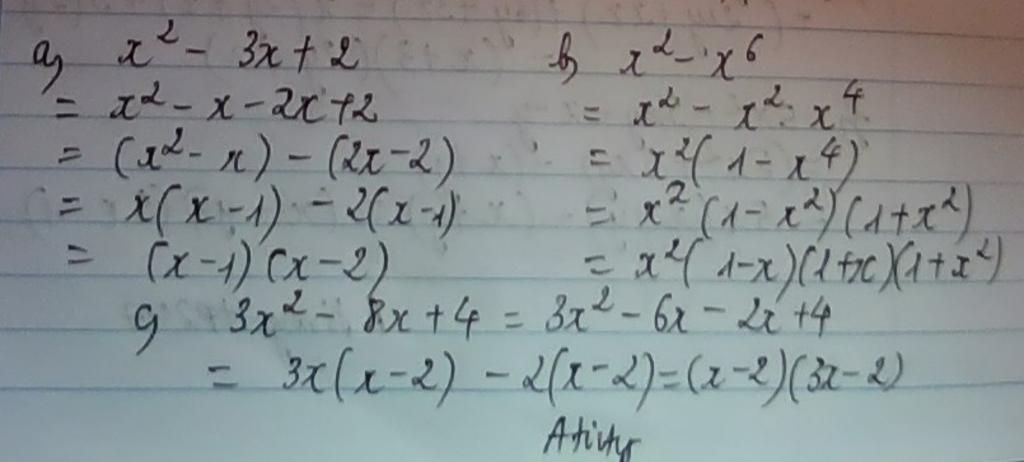 a) x² - 3x + 2
= x² - x - 2x + 2
= (x² - x) - (2x - 2)
= x(x - 1) - 2(x - 1)
= (x - 1)(x - 2)
b) x² - x⁶
= x² - x² . x⁴
= x²(1 - x⁴)
= x²(1 - x²)(1 + x²)
= x²(1 - x)(1 + x)(1 + x²)
c) 3x² - 8x + 4 = 3x² - 6x - 2x + 4
= 3x(x - 2) - 2(x - 2) = (x - 2)(3x - 2)